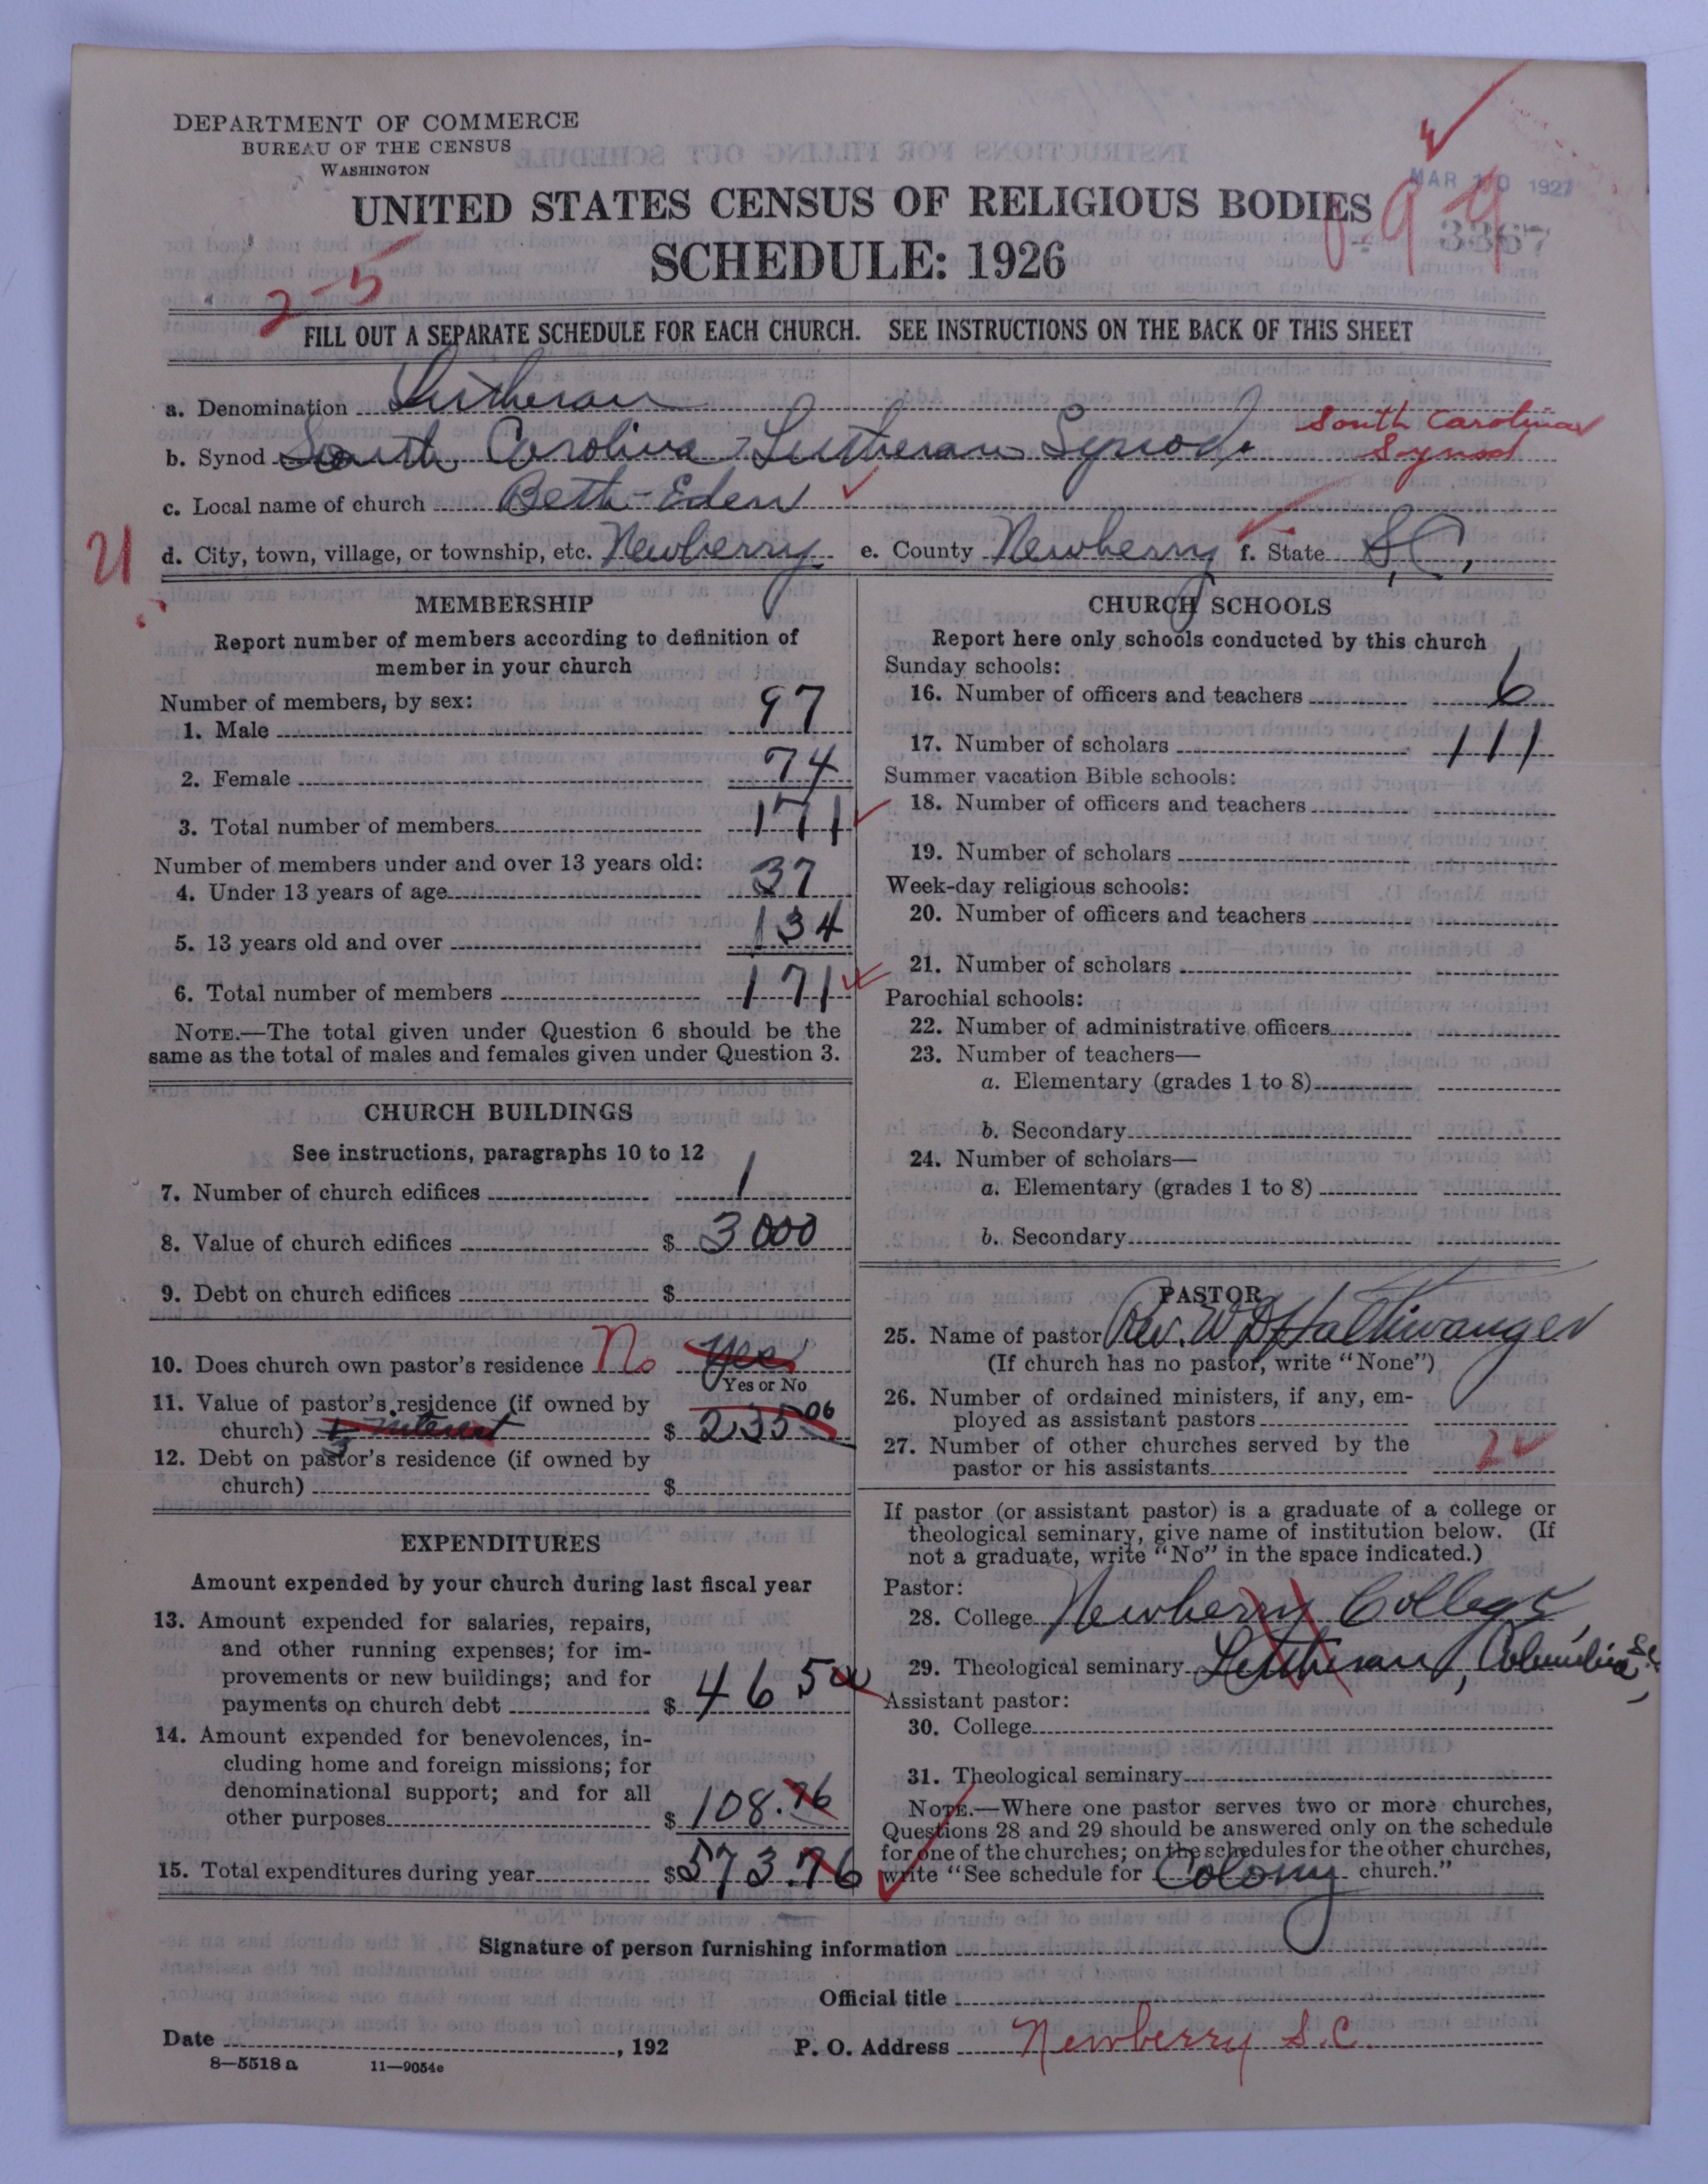 DEPARTMENT OF COMMERCE
BUREAU OF THE CENSUS
WASHINGTON
MAR 10 1927
UNITED STATES CENSUS OF RELIGIOUS BODIES
3367
SCHEDULE: 1926
2-5
FILL OUT A SEPARATE SCHEDULE FOR EACH CHURCH. SEE INSTRUCTIONS ON THE BACK OF THIS SHEET
a. Denomination Lutheran
b. Synod South Carolina Lutheran Synod. South Carolina Synod
c. Local name of church Beth-Eden
21
d. City, town, village, or township, etc. Newberry e. County Newberry f. State S.C.,
MEMBERSHIP
Report number of members according to definition of
member in your church
Number of members, by sex:
1. Male 97
2. Female 74
3. Total number of members 171
Number of members under and over 13 years old:
4. Under 13 years of age 37
5. 13 years old and over 134
6. Total number of members 171
NOTE.—The total given under Question 6 should be the
same as the total of males and females given under Question 3.
CHURCH BUILDINGS
See instructions, paragraphs 10 to 12
7. Number of church edifices 1
8. Value of church edifices $ 3000
9. Debt on church edifices $
10. Does church own pastor's residence No Yes
Yes or No
11. Value of pastor's residence (if owned by
church) 1/3 interest $ 235.06
12. Debt on pastor's residence (if owned by
church) $
EXPENDITURES
Amount expended by your church during last fiscal year
13. Amount expended for salaries, repairs,
and other running expenses; for im-
provements or new buildings; and for
payments on church debt $ 465 00
14. Amount expended for benevolences, in-
cluding home and foreign missions; for
denominational support; and for all
other purposes $ 108.76
15. Total expenditures during year $ 573.76
CHURCH SCHOOLS
Report here only schools conducted by this church
Sunday schools:
16. Number of officers and teachers 6
17. Number of scholars 111
Summer vacation Bible schools:
18. Number of officers and teachers
19. Number of scholars
Week-day religious schools:
20. Number of officers and teachers
21. Number of scholars
Parochial schools:
22. Number of administrative officers
23. Number of teachers—
a. Elementary (grades 1 to 8)
b. Secondary
24. Number of scholars—
a. Elementary (grades 1 to 8)
b. Secondary
PASTOR
25. Name of pastor Rev. W D Haltiwanger
(If church has no pastor, write "None")
26. Number of ordained ministers, if any, em-
ployed as assistant pastors
27. Number of other churches served by the
pastor or his assistants 2
If pastor (or assistant pastor) is a graduate of a college or
theological seminary, give name of institution below. (If
not a graduate, write "No" in the space indicated.)
Pastor:
28. College Newberry College,
29. Theological seminary Lutheran, Columbia, S.C.,
Assistant pastor:
30. College
31. Theological seminary
NOTE.—Where one pastor serves two or more churches,
Questions 28 and 29 should be answered only on the schedule
for one of the churches; on the schedules for the other churches,
write "See schedule for Colony church."
Signature of person furnishing information
Official title
Date , 192
P. O. Address Newberry S.C.
8—5518 a 11—9054e